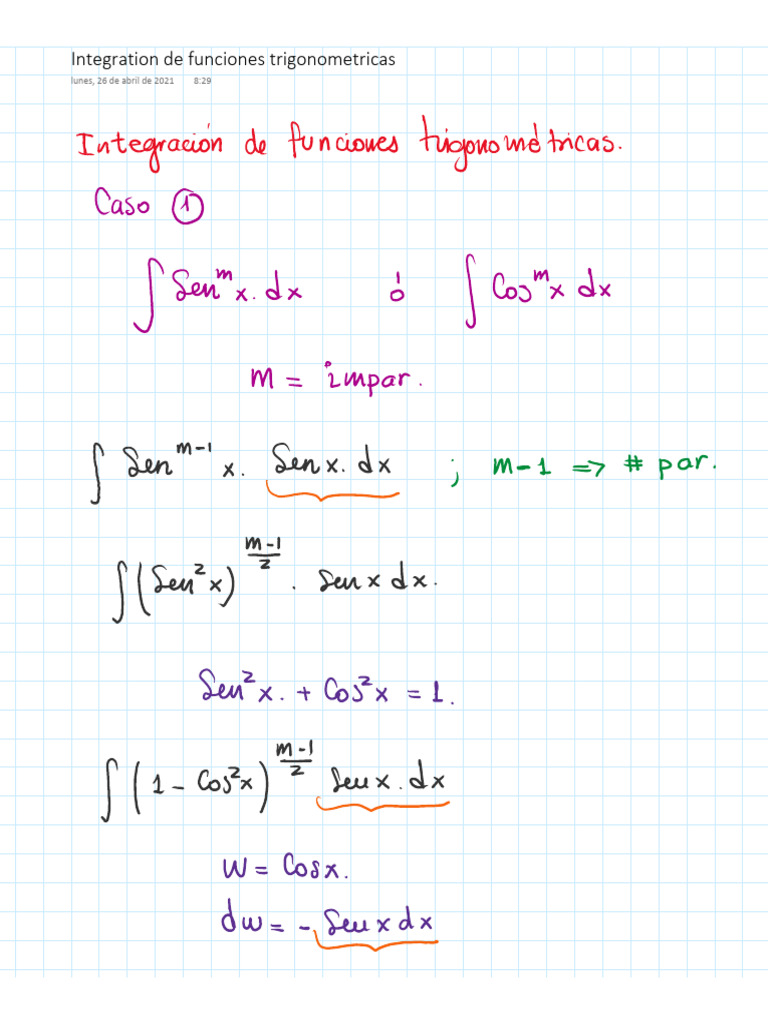 Integration de funciones trigonometricas
lunes, 26 de abril de 2021 8:29
Integración de funciones trigonométricas.
Caso ①
∫ Sen^m x. dx ó ∫ Cos^m x dx
m = impar.
∫ Sen^{m-1} x. Sen x. dx ; m-1 => # par.
∫ (Sen² x)^{\frac{m-1}{2}} . Sen x dx.
Sen² x. + Cos² x = 1.
∫ (1 - Cos² x)^{\frac{m-1}{2}} Sen x. dx
W = Cos x.
dw = - Sen x dx